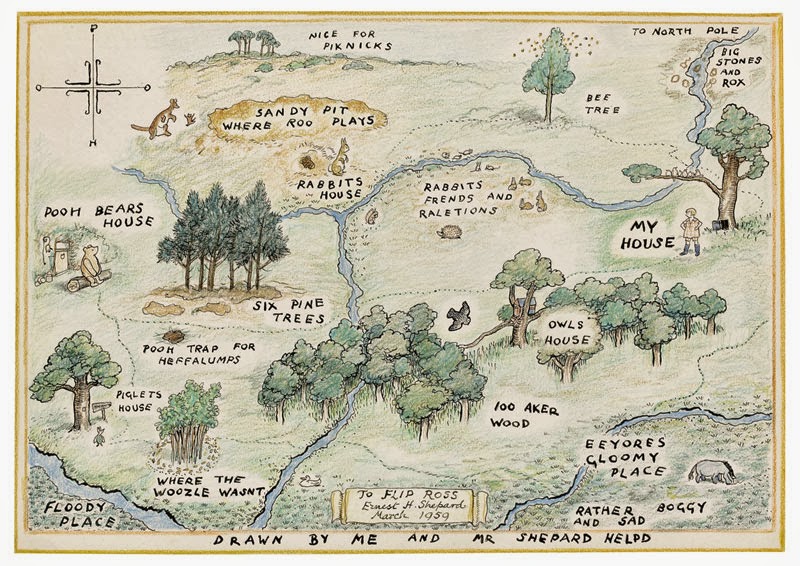 NICE FOR
PIKNICKS
TO NORTH POLE
BIG
STONES
AND
ROX
P
O
O
H
SANDY PIT
WHERE ROO PLAYS
BEE
TREE
RABBITS
HOUSE
RABBITS
FRENDS AND
RALETIONS
POOH BEARS
HOUSE
MY
HOUSE
SIX PINE
TREES
OWLS
HOUSE
POOH TRAP FOR
HEFFALUMPS
PIGLETS
HOUSE
100 AKER
WOOD
EEYORES
GLOOMY
PLACE
WHERE THE
WOOZLE WASNT
FLOODY
PLACE
TO FLIP ROSS
Ernest H. Shepard
March 1959
RATHER BOGGY
AND SAD
DRAWN BY ME AND MR SHEPARD HELPD